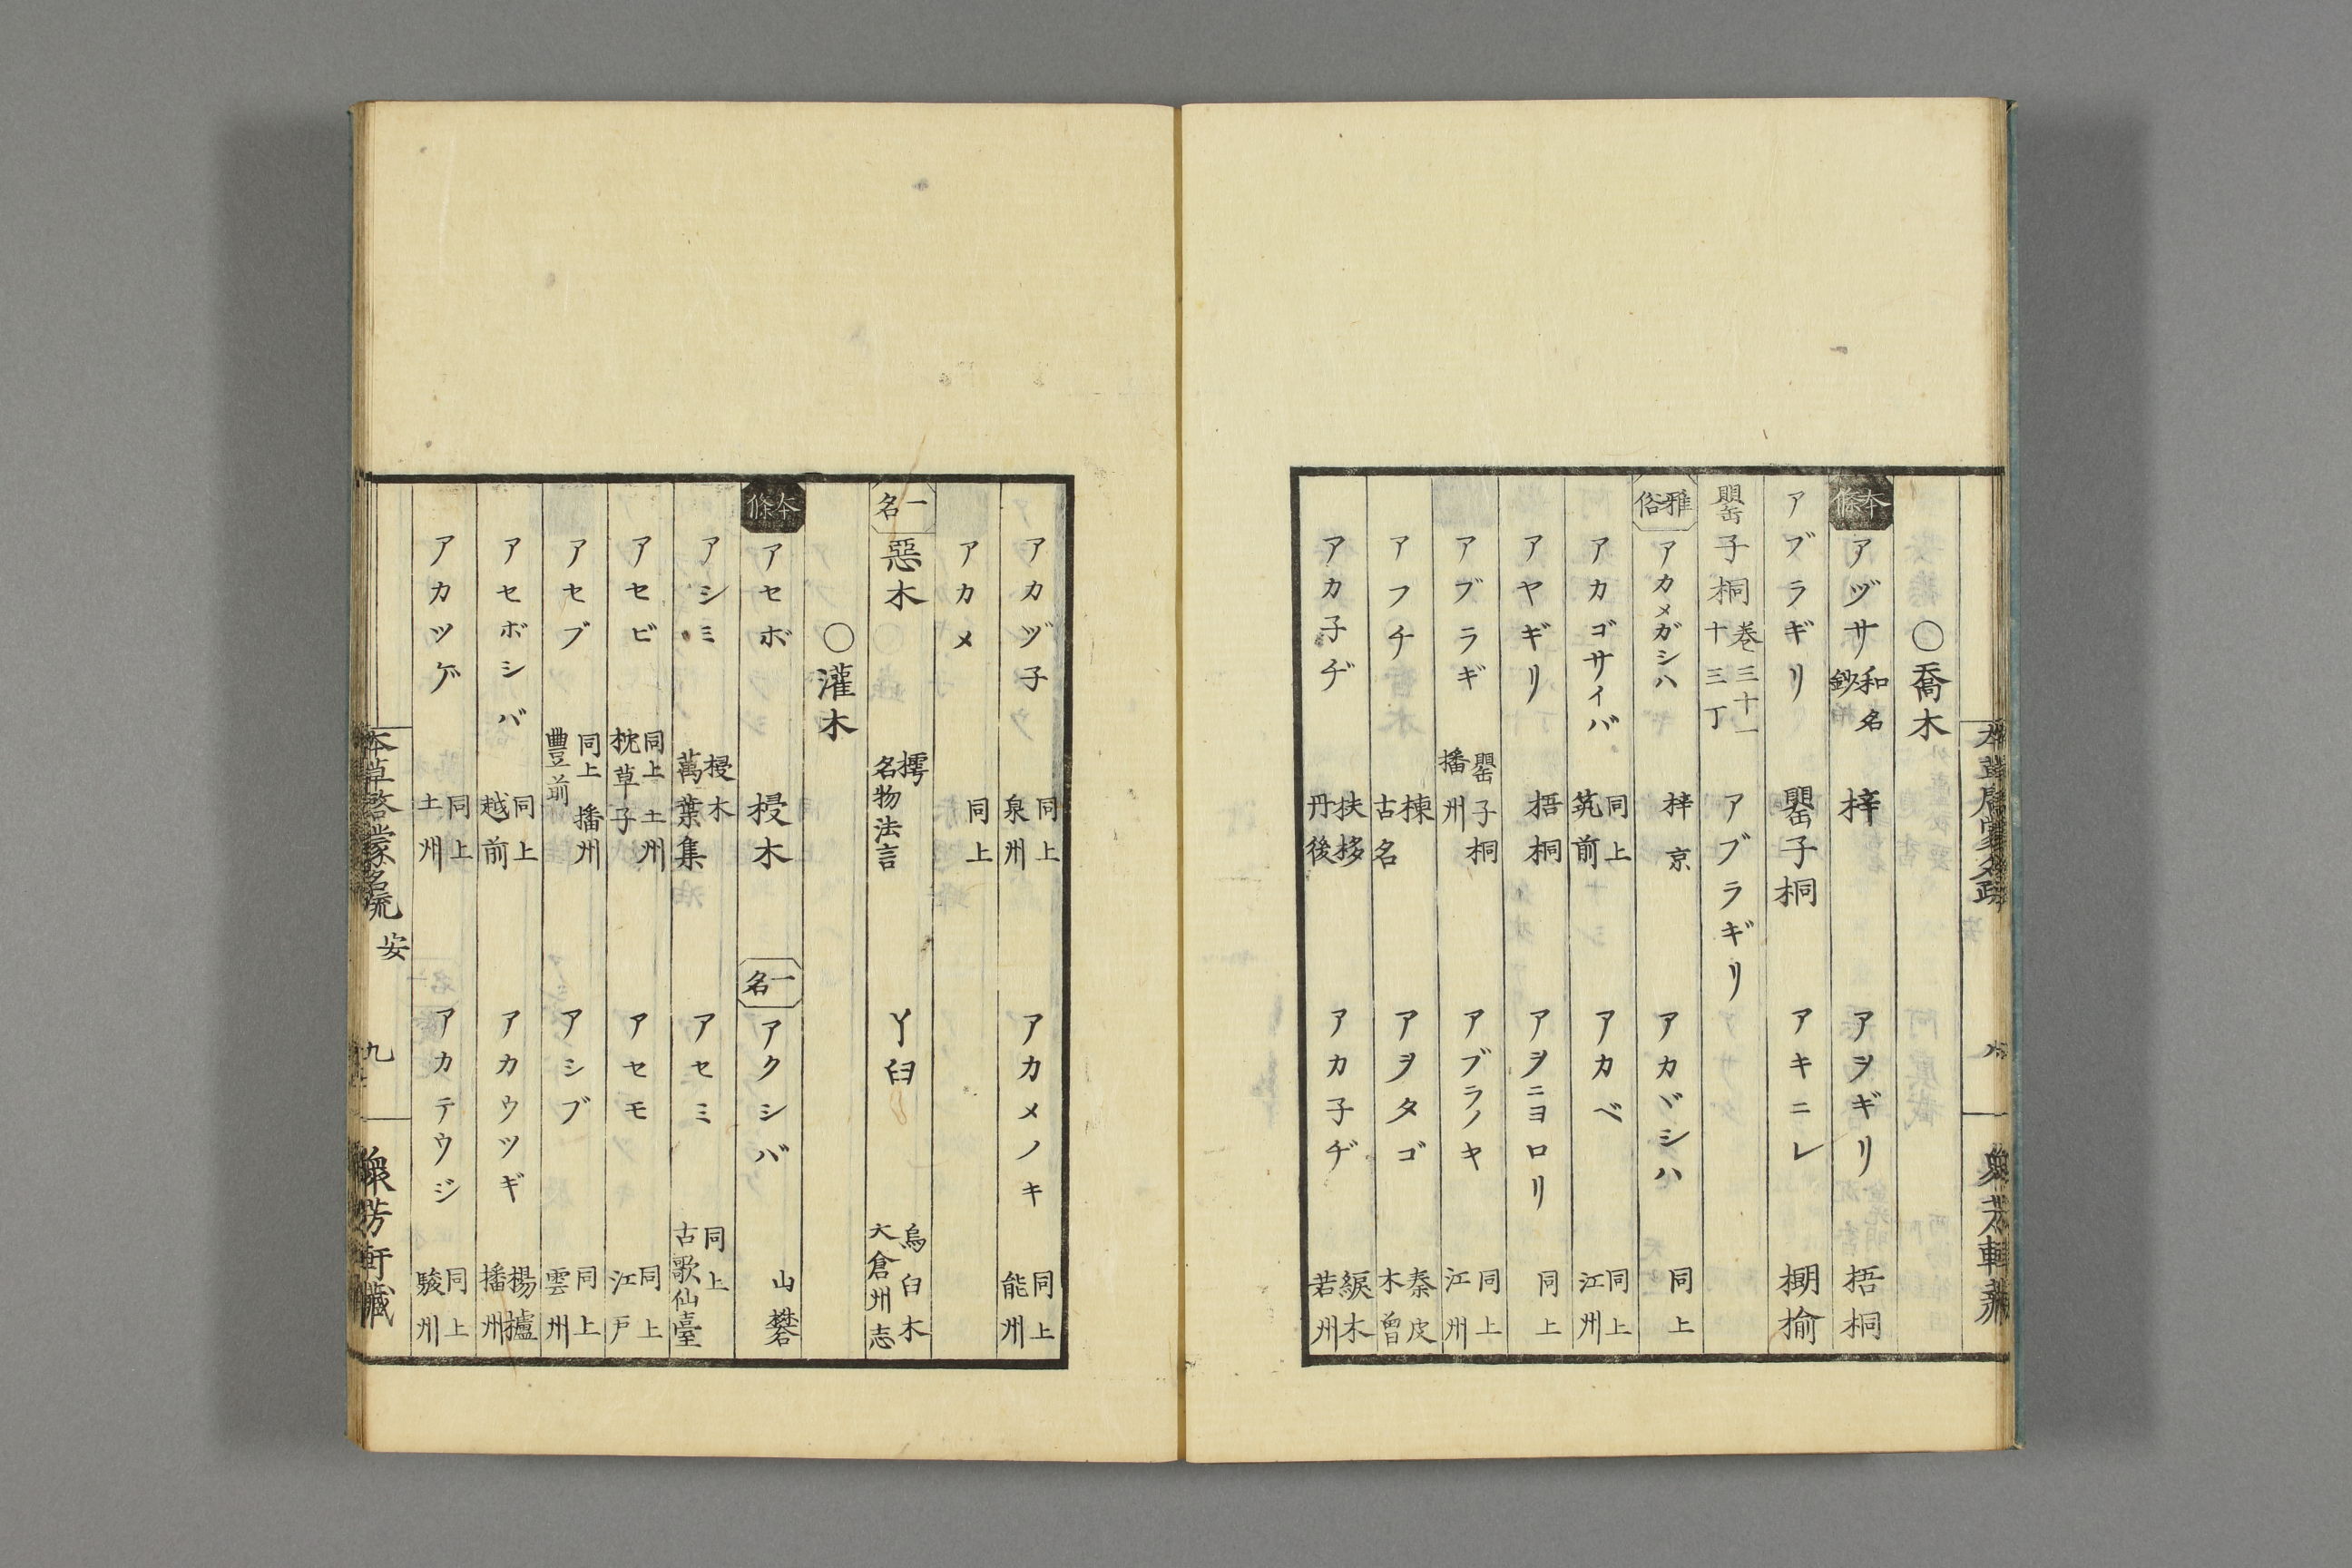 ○喬木
本條 アヅサ 和名鈔 梓 アヲギリ 梧桐
アブラギリ 罌子桐 アキニレ 榔榆
罌子桐 巻三十一 十三丁 アブラギリ
雅俗 アカメガシハ 梓 京 アカヾシハ 同上
アカゴサイバ 同上 筑前 アカベ 同上 江州
アヤギリ 梧桐 アヲニヨロリ 同上
アブラギ 罌子桐 播州 アブラノキ 同上 江州
アフチ 楝 古名 アヲタゴ 秦皮 木曽
アカ子ヂ 扶栘 丹後 アカ子ヂ 綟木 若州
八
アカヅ子 同上 泉州 アカメノキ 同上 能州
アカメ 同上
一名 惡木 樗 名物法言 丫臼 烏臼木 大倉州志
○灌木
本條 アセボ 梫木 一名 アクシバ 山礬
アシミ 梫木 萬葉集 アセミ 同上 古歌仙臺
アセビ 同上 土州 枕草子 アセモ 同上 江戸
アセブ 同上 播州 豊前 アシブ 同上 雲州
アセボシバ 同上 越前 アカウツギ 楊櫨 播州
アカツゲ 同上 土州 アカテウジ 同上 駿州
本草啓蒙名疏 安 九 衆芳軒藏